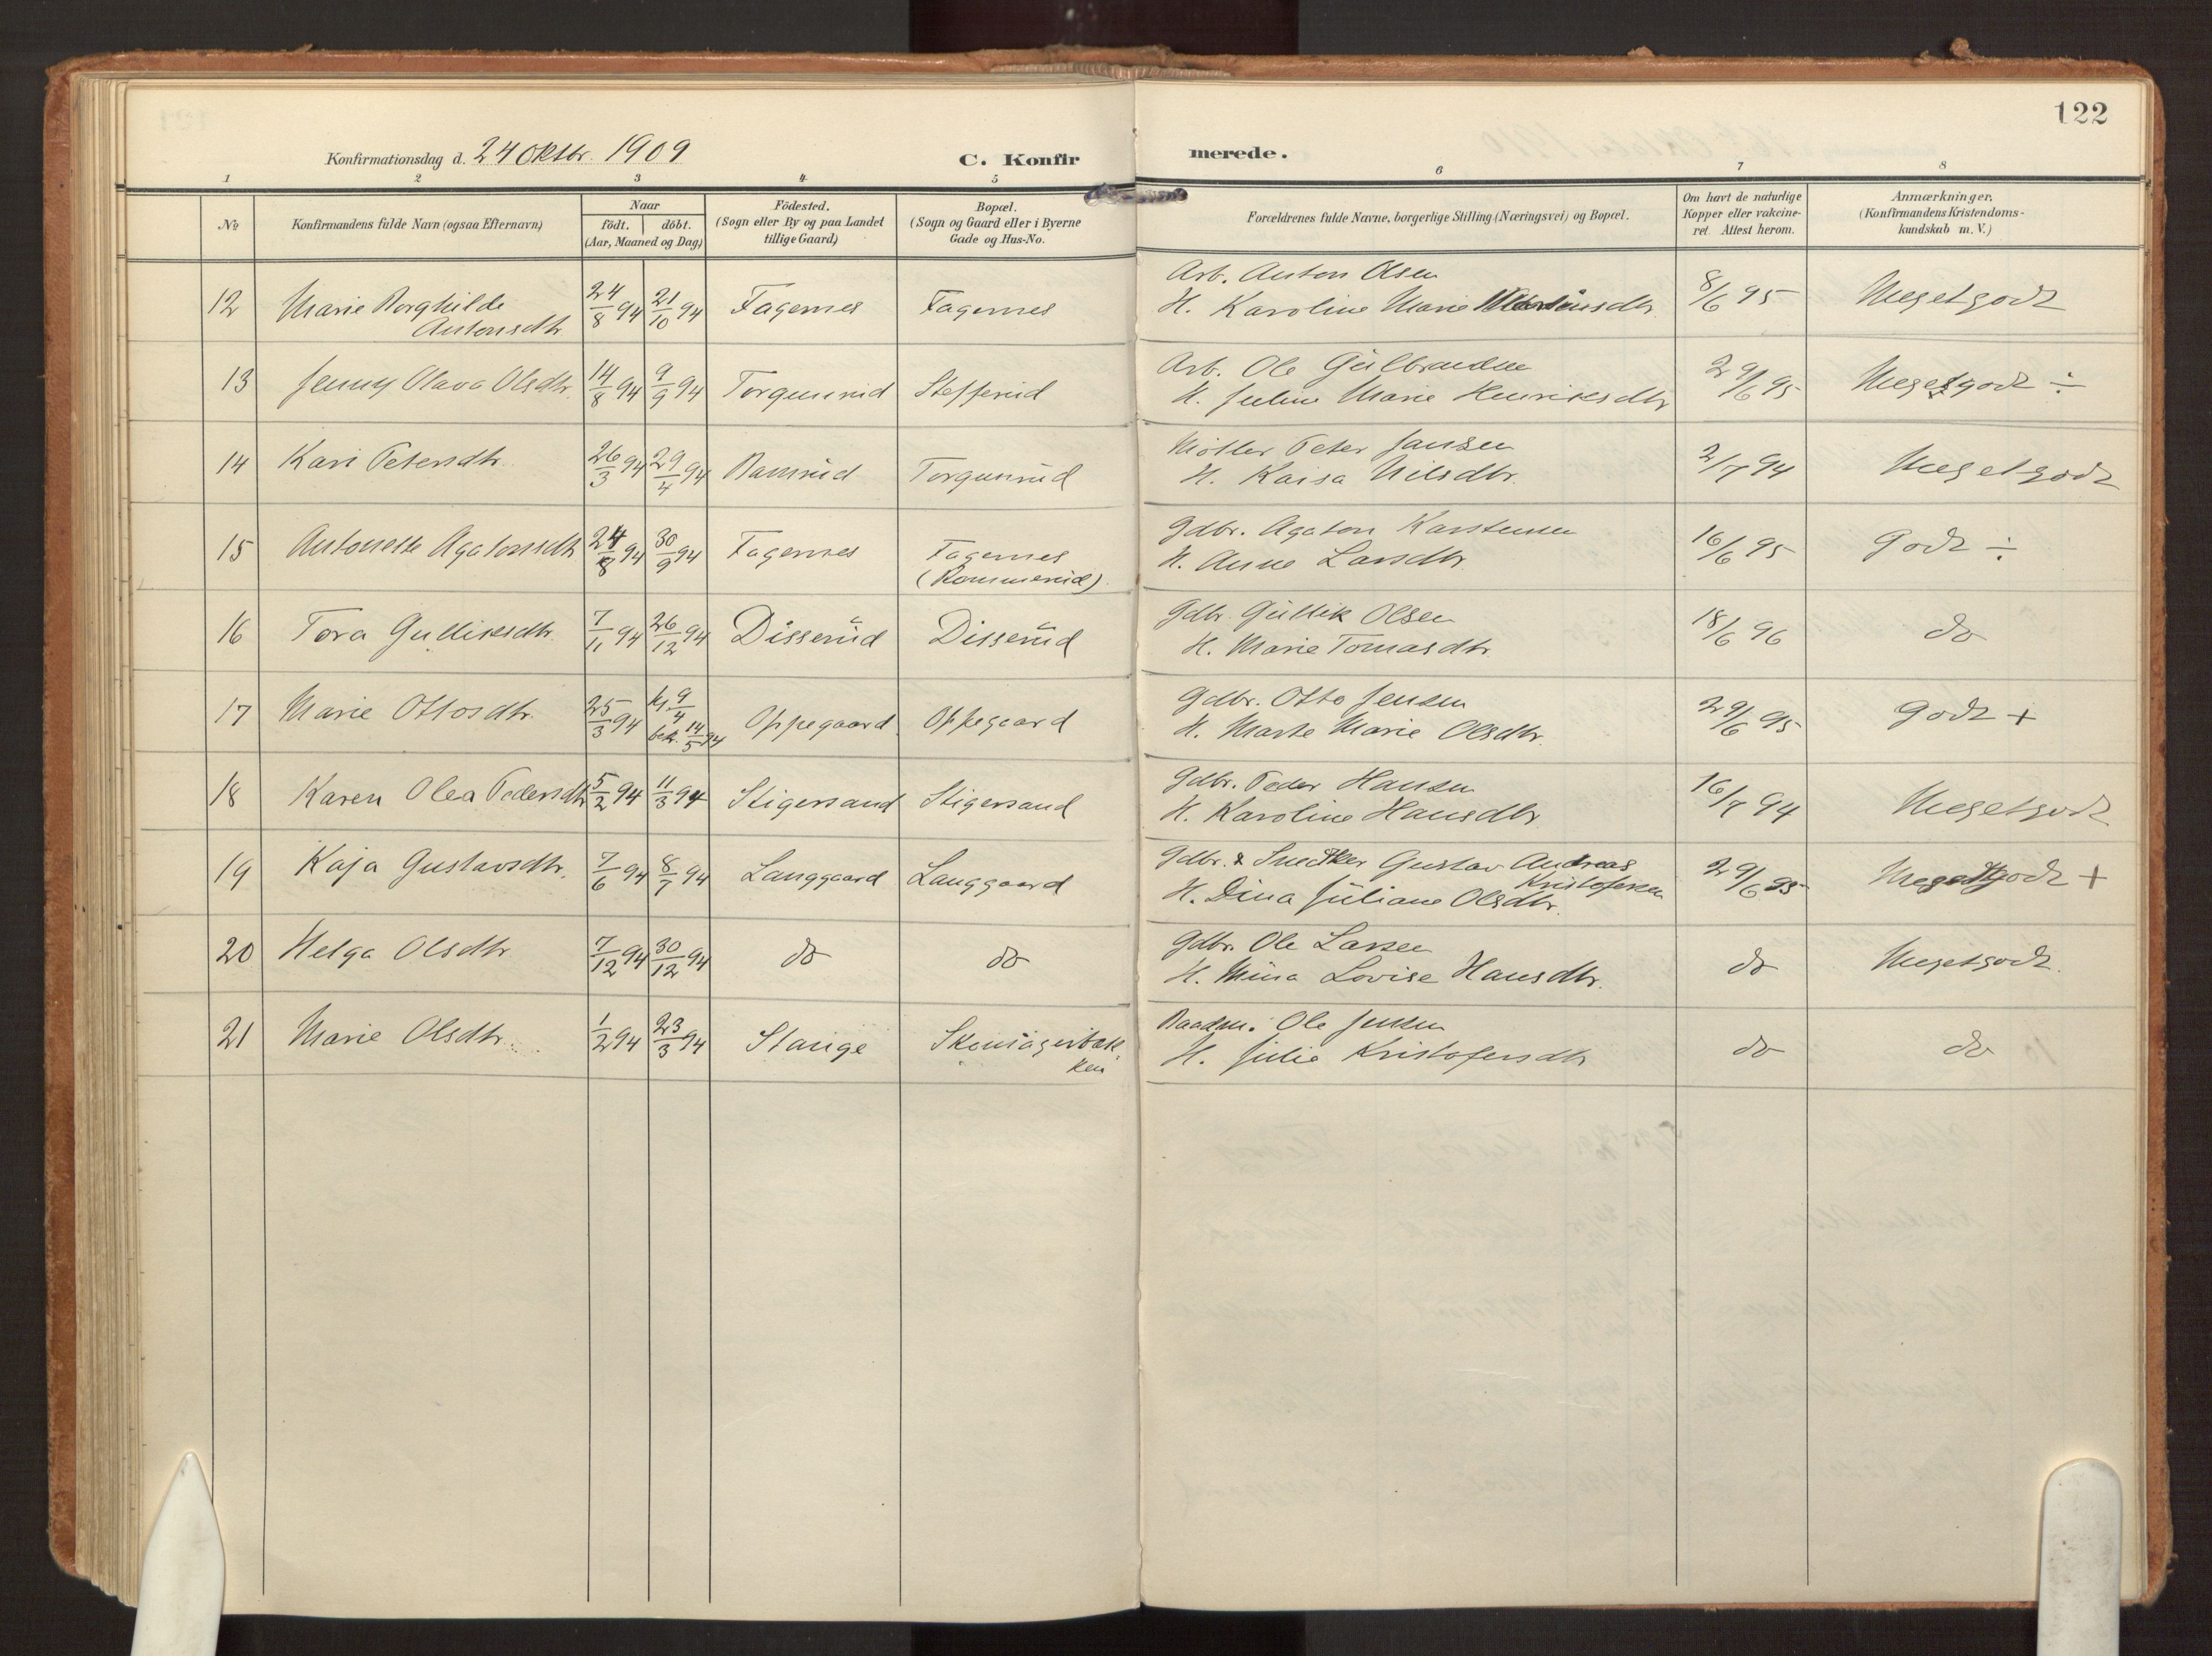 122
Konfirmationsdag d. 24 Oktbr. 1909
C. Konfirmerede.
1 2 3 4 5 6 7 8
No
Konfirmandens fulde Navn (ogsaa Efternavn)
Naar
födt. döbt.
(Aar, Maaned og Dag)
Födested.
(Sogn eller By og paa Landet
tillige Gaard)
Bopæl.
(Sogn og Gaard eller i Byerne
Gade og Hus-No.
Forældrenes fulde Navne, borgerlige Stilling (Næringsvei) og Bopæl.
Om havt de naturlige
Kopper eller vakcine-
ret. Attest herom.
Anmærkninger,
(Konfirmandens Kristendoms-
kundskab m. V.)
12 Marie Borghilde 24/8 94 21/10 94 Fagernes Fagernes Arb. Anton Olsen 8/6 95 Megetgodt
Antonsdtr. H. Karoline Marie
13 Jenny Olava Olsdtr. 14/8 94 9/9 94 Torgunrud Stefferud Arb. Ole Gulbrandsen 29/6 95 Megetgodt ÷
H. Juline Marie Henriksdtr
14 Kari Petersdtr. 26/3 94 29/4 94 Ramrud Torgunrud Möller Peter Jansen 2/7 94 Megetgodt
H. Kaisa Nilsdtr.
15 Antonette Agatonsdtr 24/8 94 30/9 94 Fagernes Fagernes Gdbr. Agaton Karstensen 16/6 95 Godt ÷
(Rommerud). H. Anne Larsdtr.
16 Tora Gulliksdtr. 7/11 94 26/12 94 Disserud Disserud Gdbr. Gullik Olsen 18/6 96 do
H. Marie Tomasdtr.
17 Marie Ottosdtr. 25/3 94 hj. 9/4 Oppegaard Oppegaard Gdbr. Otto Jensen 29/6 95 Godt +
bek. 14/5 94 H. Marte Marie Olsdtr.
18 Karen Olea Pedersdtr 5/2 94 11/3 94 Stigersand Stigersand Gdbr. Peder Hansen 16/7 94 Megetgodt
H. Karoline Hansdtr.
19 Kaja Gustavsdtr. 7/6 94 8/7 94 Langgaard Langgaard Gdbr. & Snedker Gustav Andreas 29/6 95 Megetgodt +
Kristofersen
H. Dina Juliane Olsdtr.
20 Helga Olsdtr 7/12 94 30/12 94 do do Gdbr. Ole Larsen do Megetgodt.
H. Mina Lovise Hansdtr.
21 Marie Olsdtr. 1/2 94 23/3 94 Stange Ole Jensen do do
ken H. Julie Kristofersdtr